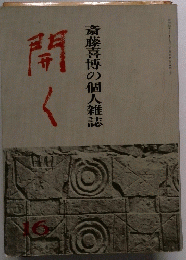 斎藤喜博の個人雑誌
開く
16